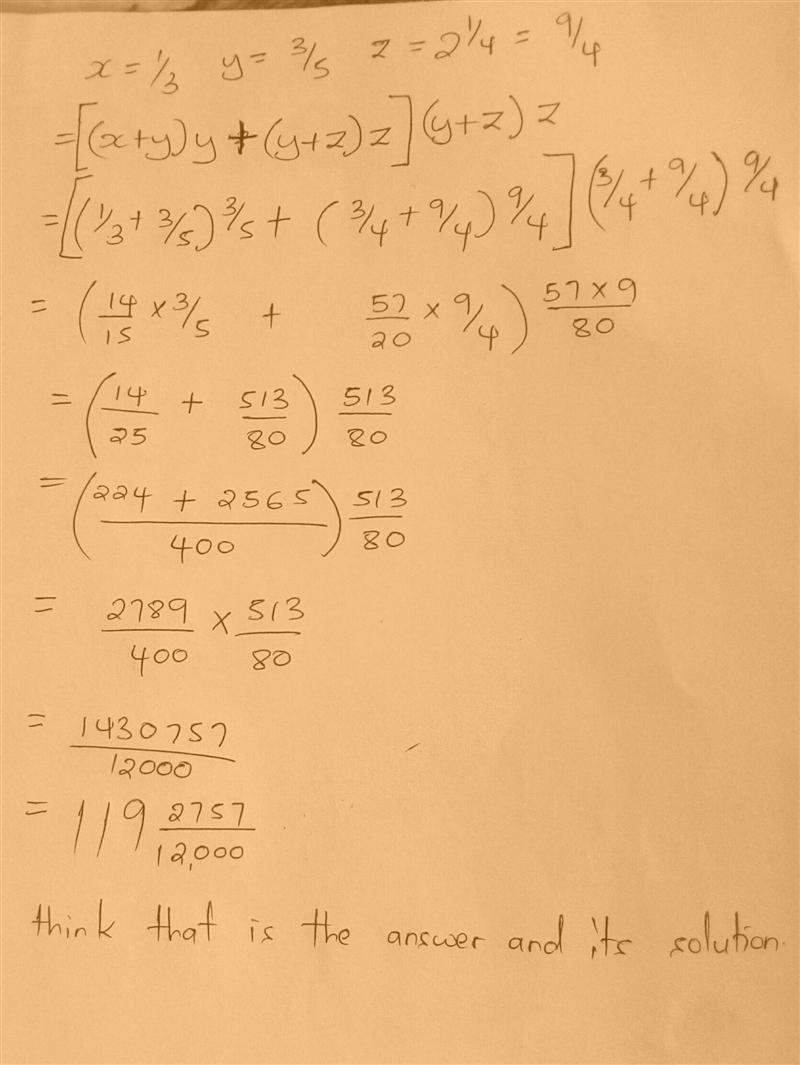 x = 1/3 y = 3/5 z = 2 1/4 = 9/4
= [(x+y)y + (y+z)z](y+z)z
= [(1/3 + 3/5) 3/5 + (3/4 + 9/4) 9/4](3/4 + 9/4) 9/4
= (14/15 × 3/5 + 57/20 × 9/4) 57×9/80
= (14/25 + 513/80) 513/80
= (224 + 2565/400) 513/80
= 2789/400 × 513/80
= 1430757/12000
= 119 2757/12,000
think that is the answer and its solution.